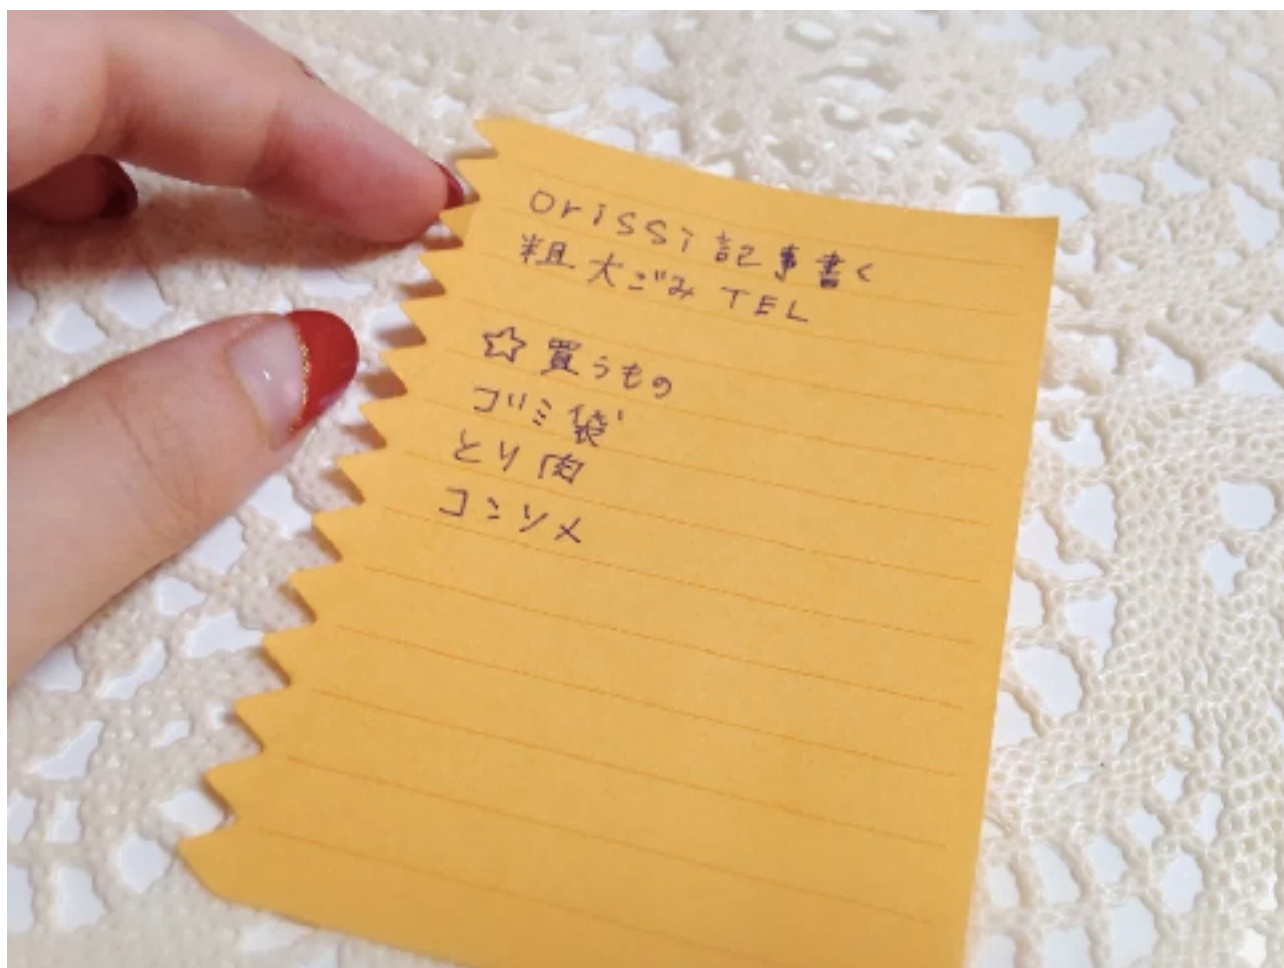 orissi 記事書く
粗大ごみ TEL
☆買うもの
ゴミ袋
とり肉
コンソメ